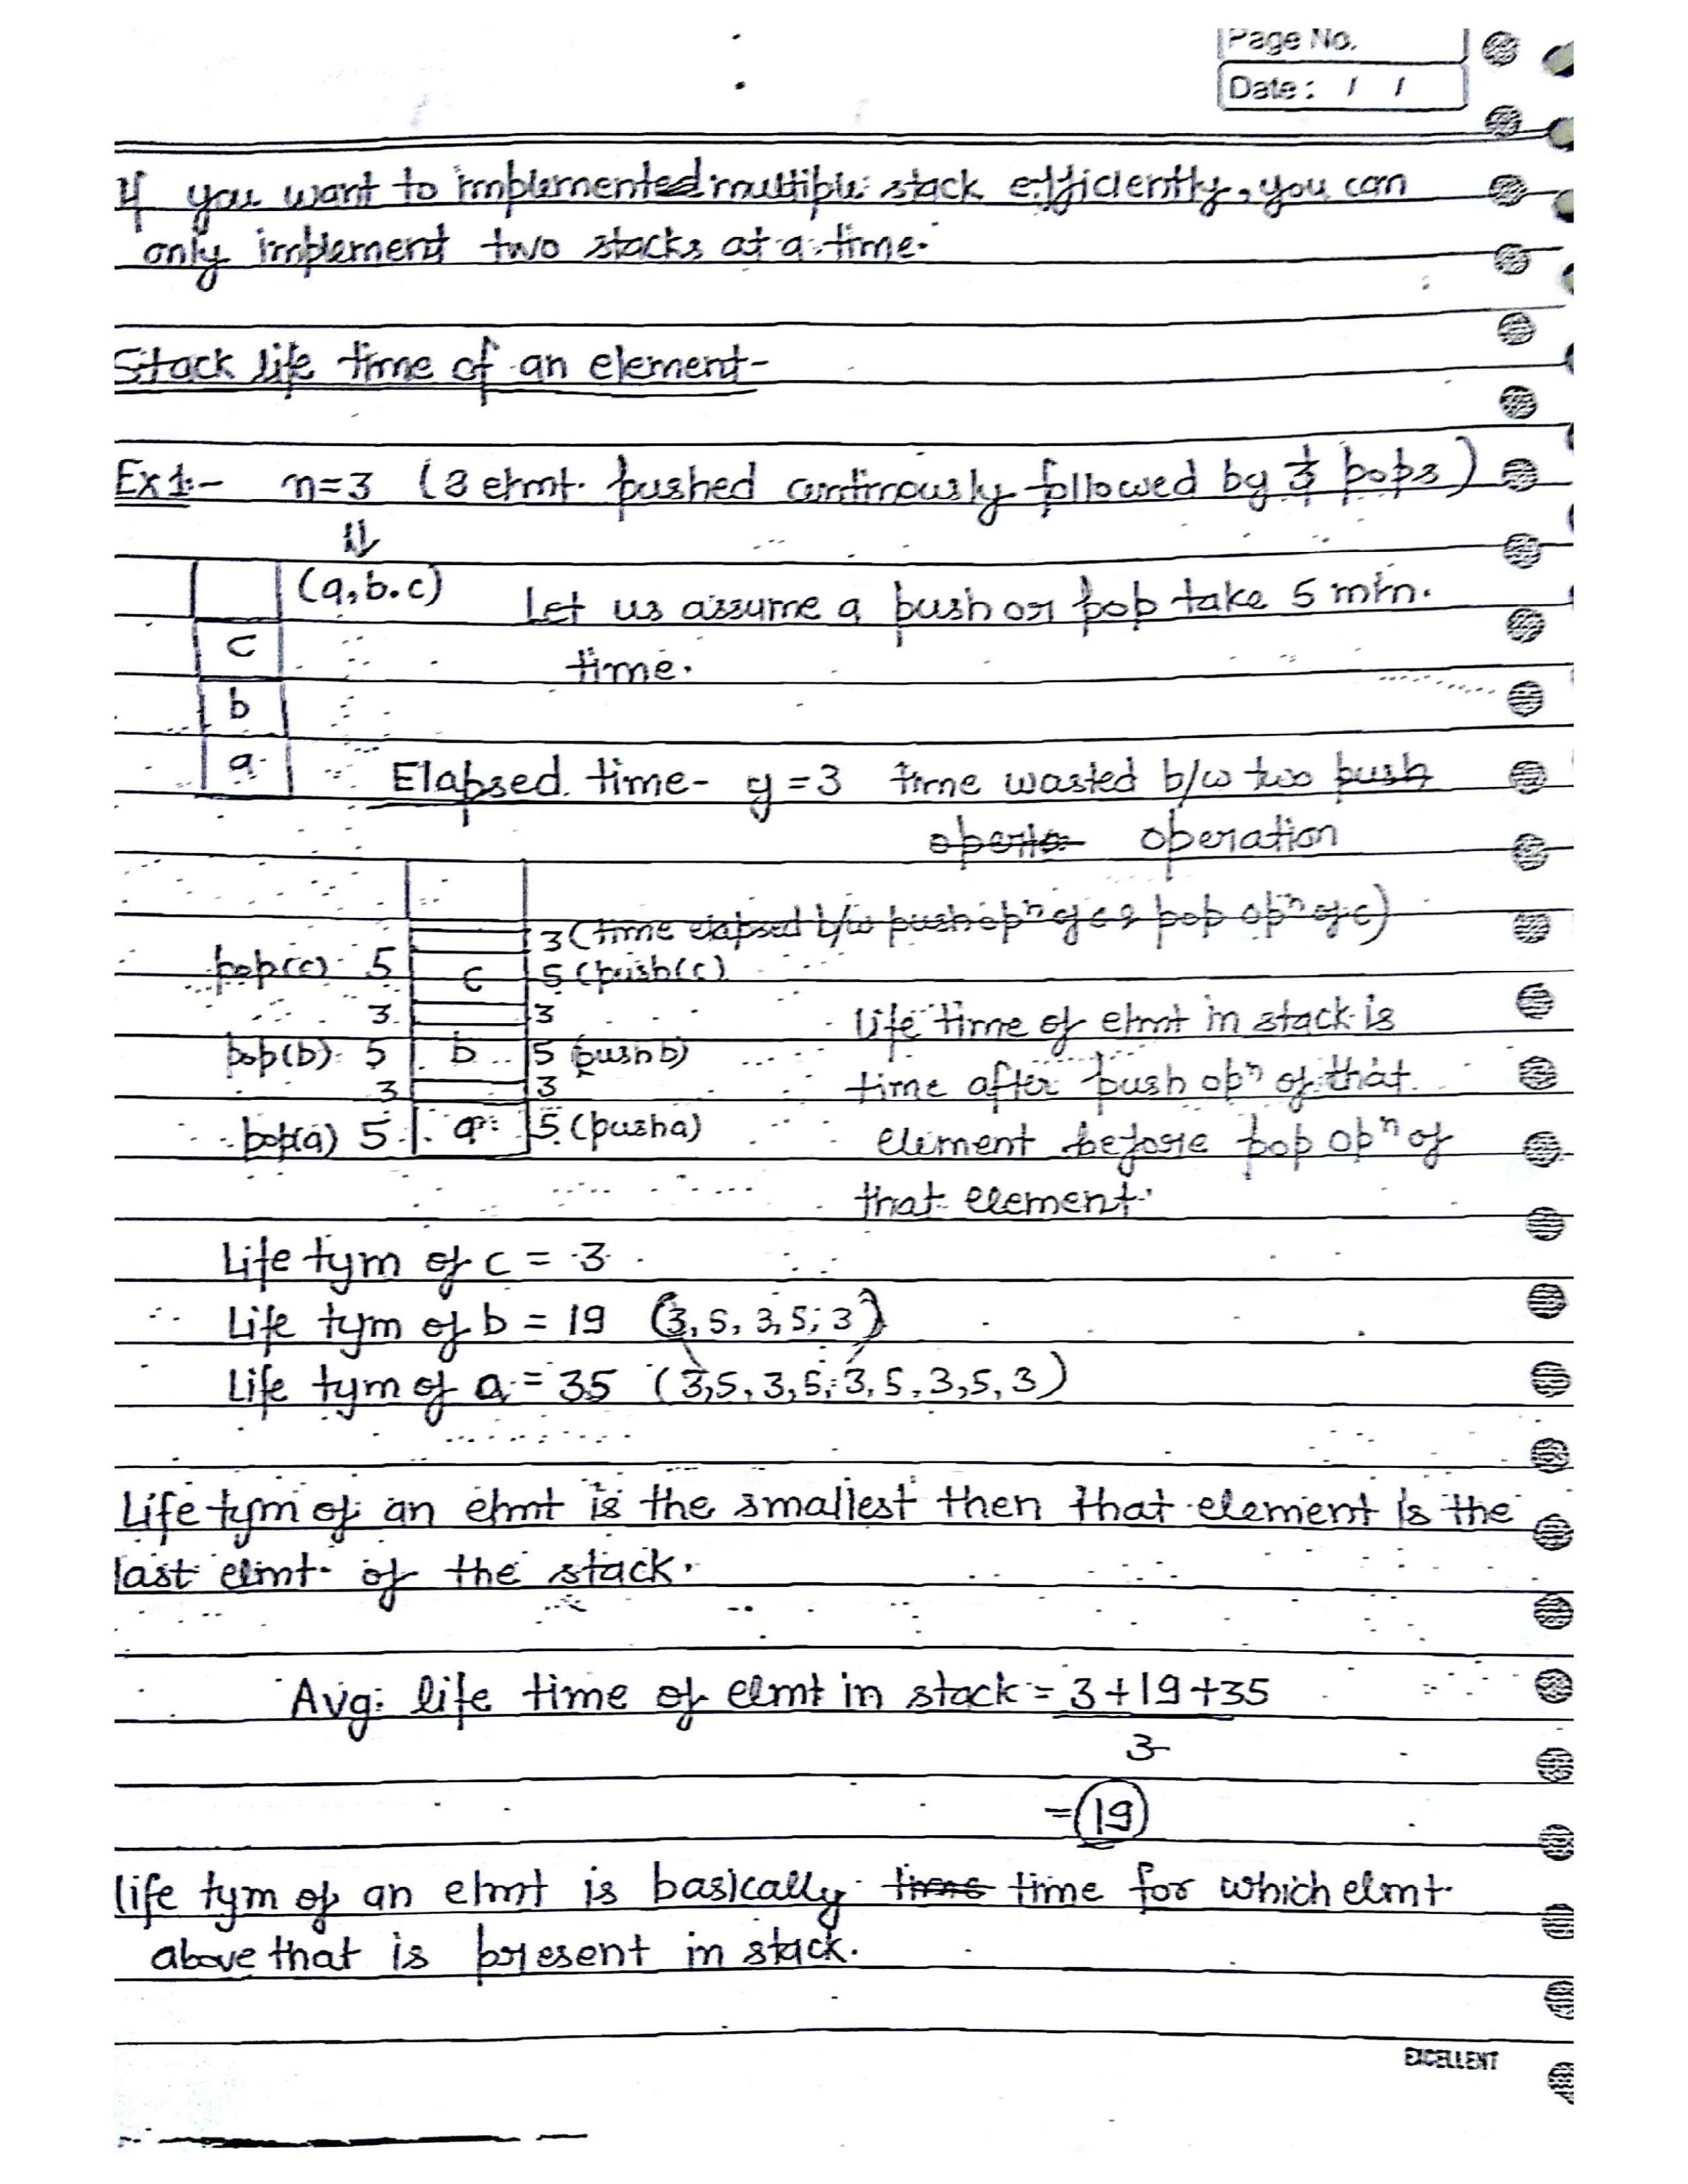 Page No.
Date: / /
If you want to implemented multiple stack efficiently, you can
only implement two stacks at a time.
Stack life time of an element-
Ex1:- n=3 (3 elmt. pushed continously followed by 3 pops)
⇓
(a,b.c) Let us assume a push or pop take 5 min.
c time.
b
a Elapsed time- y=3 time wasted b/w two push
operation
3 (time elapsed b/w push opn of c & pop opn of c)
pop(c) 5 c 5 (push(c)
3 3 life time of elmt in stack is
pop(b) 5 b 5 (push b)
3 3 time after push opn of that
pop(a) 5 a 5 (push a) element before pop opn of
that element.
Life tym of c = 3
Life tym of b = 19 (3, 5, 3, 5, 3)
Life tym of a = 35 (3,5,3,5,3,5,3,5,3)
Life tym of an elmt is the smallest then that element is the
last elmt. of the stack.
Avg. life time of elmt in stack = 3+19+35
3
= 19
life tym of an elmt is basically time time for which elmt
above that is present in stack.
EXCELLENT